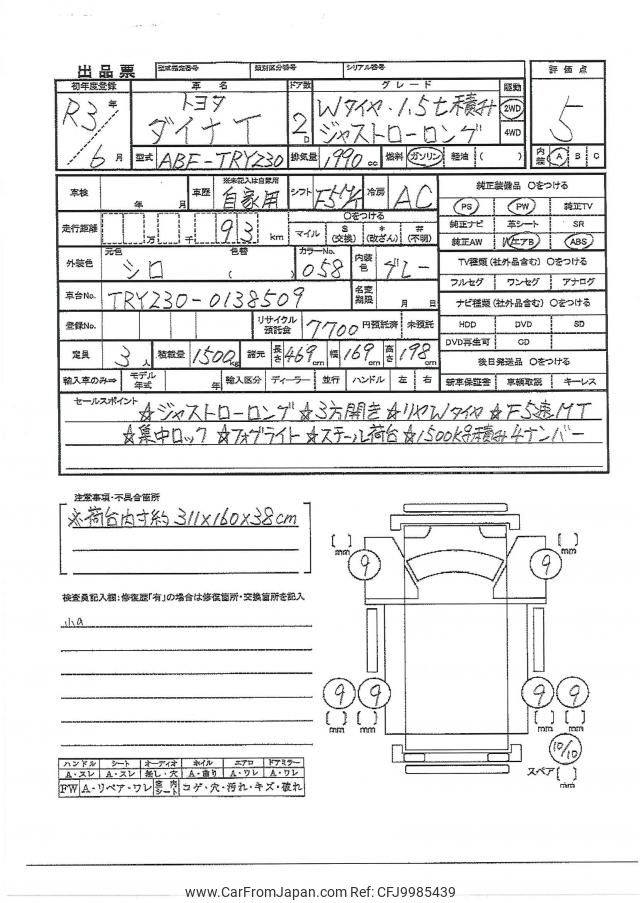 出品票 型式指定番号 類別区分番号 シリアル番号
初年度登録 車名 ドア数 グレード 駆動 評価点
R3年 トヨタ Wタイヤ・1.5t積み 2WD
ダイナT 2D ジャストローロング 4WD 5
6月 型式 ABF-TRY230 排気量 1990cc 燃料 ガソリン・軽油( ) 内装 A B C
車検 年 月 車歴 ※未記入は自家用 自家用 シフト F5MT 冷房 AC
走行距離 万 千 93 km ○をつける マイル $(交換) *(改ざん) #(不明)
外装色 元色 シロ 色替( ) カラーNo. 058 内装色 グレー
車台No. TRY230-0138509 名変期限 月 日
登録No. リサイクル預託金 7700 円預託済 未預託
定員 3人 積載量 1500kg 諸元 長さ469cm 幅169cm 高さ198cm
輸入車のみ⇒ モデル年式 年 輸入区分 ディーラー・並行 ハンドル 左・右
純正装備品 ○をつける
PS PW 純正TV
純正ナビ 革シート SR
純正AW WエアB ABS
TV種類(社外品含む)○をつける
フルセグ ワンセグ アナログ
ナビ種類(社外品含む)○をつける
HDD DVD SD
DVD再生可 CD
後日発送品 ○をつける
新車保証書 車輌取説 キーレス
セールスポイント ☆ジャストローロング ☆3方開き ☆リヤWタイヤ ☆F5速MT
☆集中ロック ☆フォグライト ☆スチール荷台 ☆1500kg積み4ナンバー
注意事項・不具合箇所
※荷台内寸約311×160×38cm
検査員記入欄:修復歴「有」の場合は修復箇所・交換箇所を記入
小A
[ ]mm [ ]mm
9 9
9 9 9 9
[ ]mm [ ]mm [ ]mm [ ]mm
10/10
スペア[ ]mm
ハンドル シート オーディオ ホイル エアロ ドアミラー
A・スレ A・スレ 無し・穴 A・曲り A・ワレ A・ワレ
FW A・リペア・ワレ 室内シート コゲ・穴・汚れ・キズ・破れ
www.CarFromJapan.com Ref: CFJ9985439